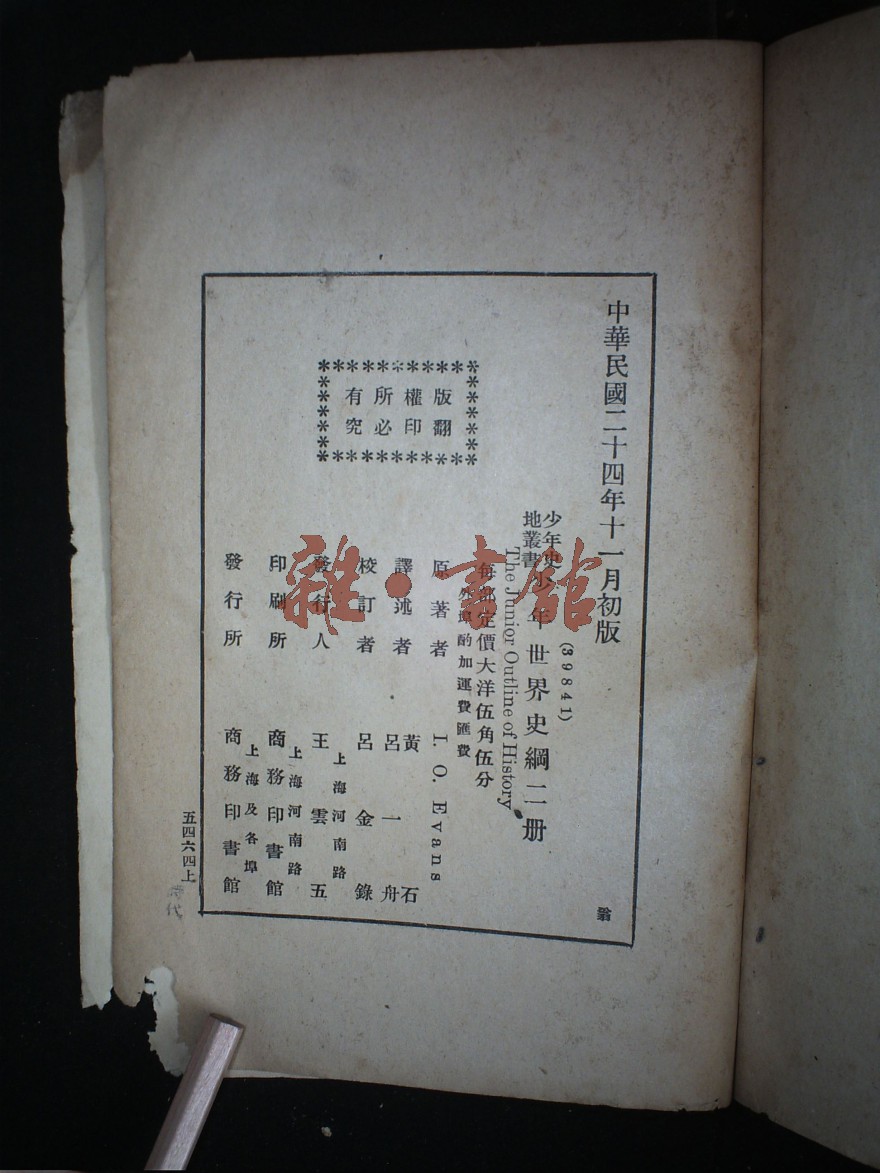 中華民國二十四年十一月初版
(39841)
少年史
地叢書
少年世界史綱二册
The Junior Outline of History
每部定價大洋伍角伍分
外埠酌加運費匯費
版權所有
翻印必究
原著者 I. O. Evans
譯述者 黃石 呂一舟
校訂者 呂金錄
發行人 王雲五
上海河南路
印刷所 商務印書館
上海河南路
發行所 商務印書館
上海及各埠
五四六四上
雜·書館